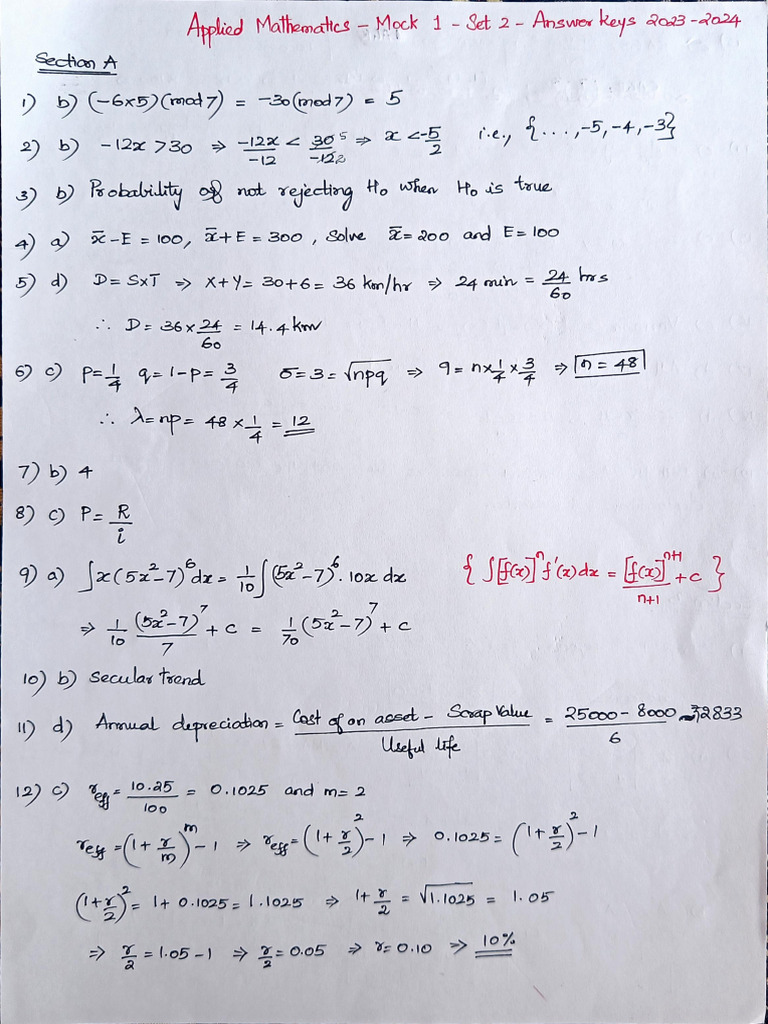 Applied Mathematics - Mock 1 - Set 2 - Answer keys 2023-2024
Section A
1) b) (-6×5)(mod 7) = -30(mod 7) = 5
2) b) -12x > 30 ⇒ -12x/-12 < 30/-12 5/2 ⇒ x < -5/2 i.e., {..., -5, -4, -3}
3) b) Probability of not rejecting H₀ when H₀ is true
4) a) x̄-E = 100, x̄+E = 300, Solve x̄ = 200 and E = 100
5) d) D = S×T ⇒ X+Y = 30+6 = 36 km/hr ⇒ 24 min = 24/60 hrs
∴ D = 36 × 24/60 = 14.4 km
6) c) P = 1/4 q = 1-P = 3/4 σ = 3 = √npq ⇒ 9 = n × 1/4 × 3/4 ⇒ n = 48
∴ λ = np = 48 × 1/4 = 12
7) b) 4
8) c) P = R/i
9) a) ∫x(5x²-7)⁶dx = 1/10 ∫(5x²-7)⁶. 10x dx {∫[f(x)]ⁿ f'(x)dx = [f(x)]ⁿ⁺¹/n+1 + c}
⇒ 1/10 (5x²-7)⁷/7 + c = 1/70 (5x²-7)⁷ + c
10) b) Secular trend
11) d) Annual depreciation = Cost of an asset - Scrap Value/Useful life = 25000 - 8000/6 ~ ₹2833
12) c) r_eff = 10.25/100 = 0.1025 and m = 2
r_eff = (1 + r/m)^m - 1 ⇒ r_eff = (1 + r/2)² - 1 ⇒ 0.1025 = (1 + r/2)² - 1
(1 + r/2)² = 1 + 0.1025 = 1.1025 ⇒ 1 + r/2 = √1.1025 = 1.05
⇒ r/2 = 1.05 - 1 ⇒ r/2 = 0.05 ⇒ r = 0.10 ⇒ 10%